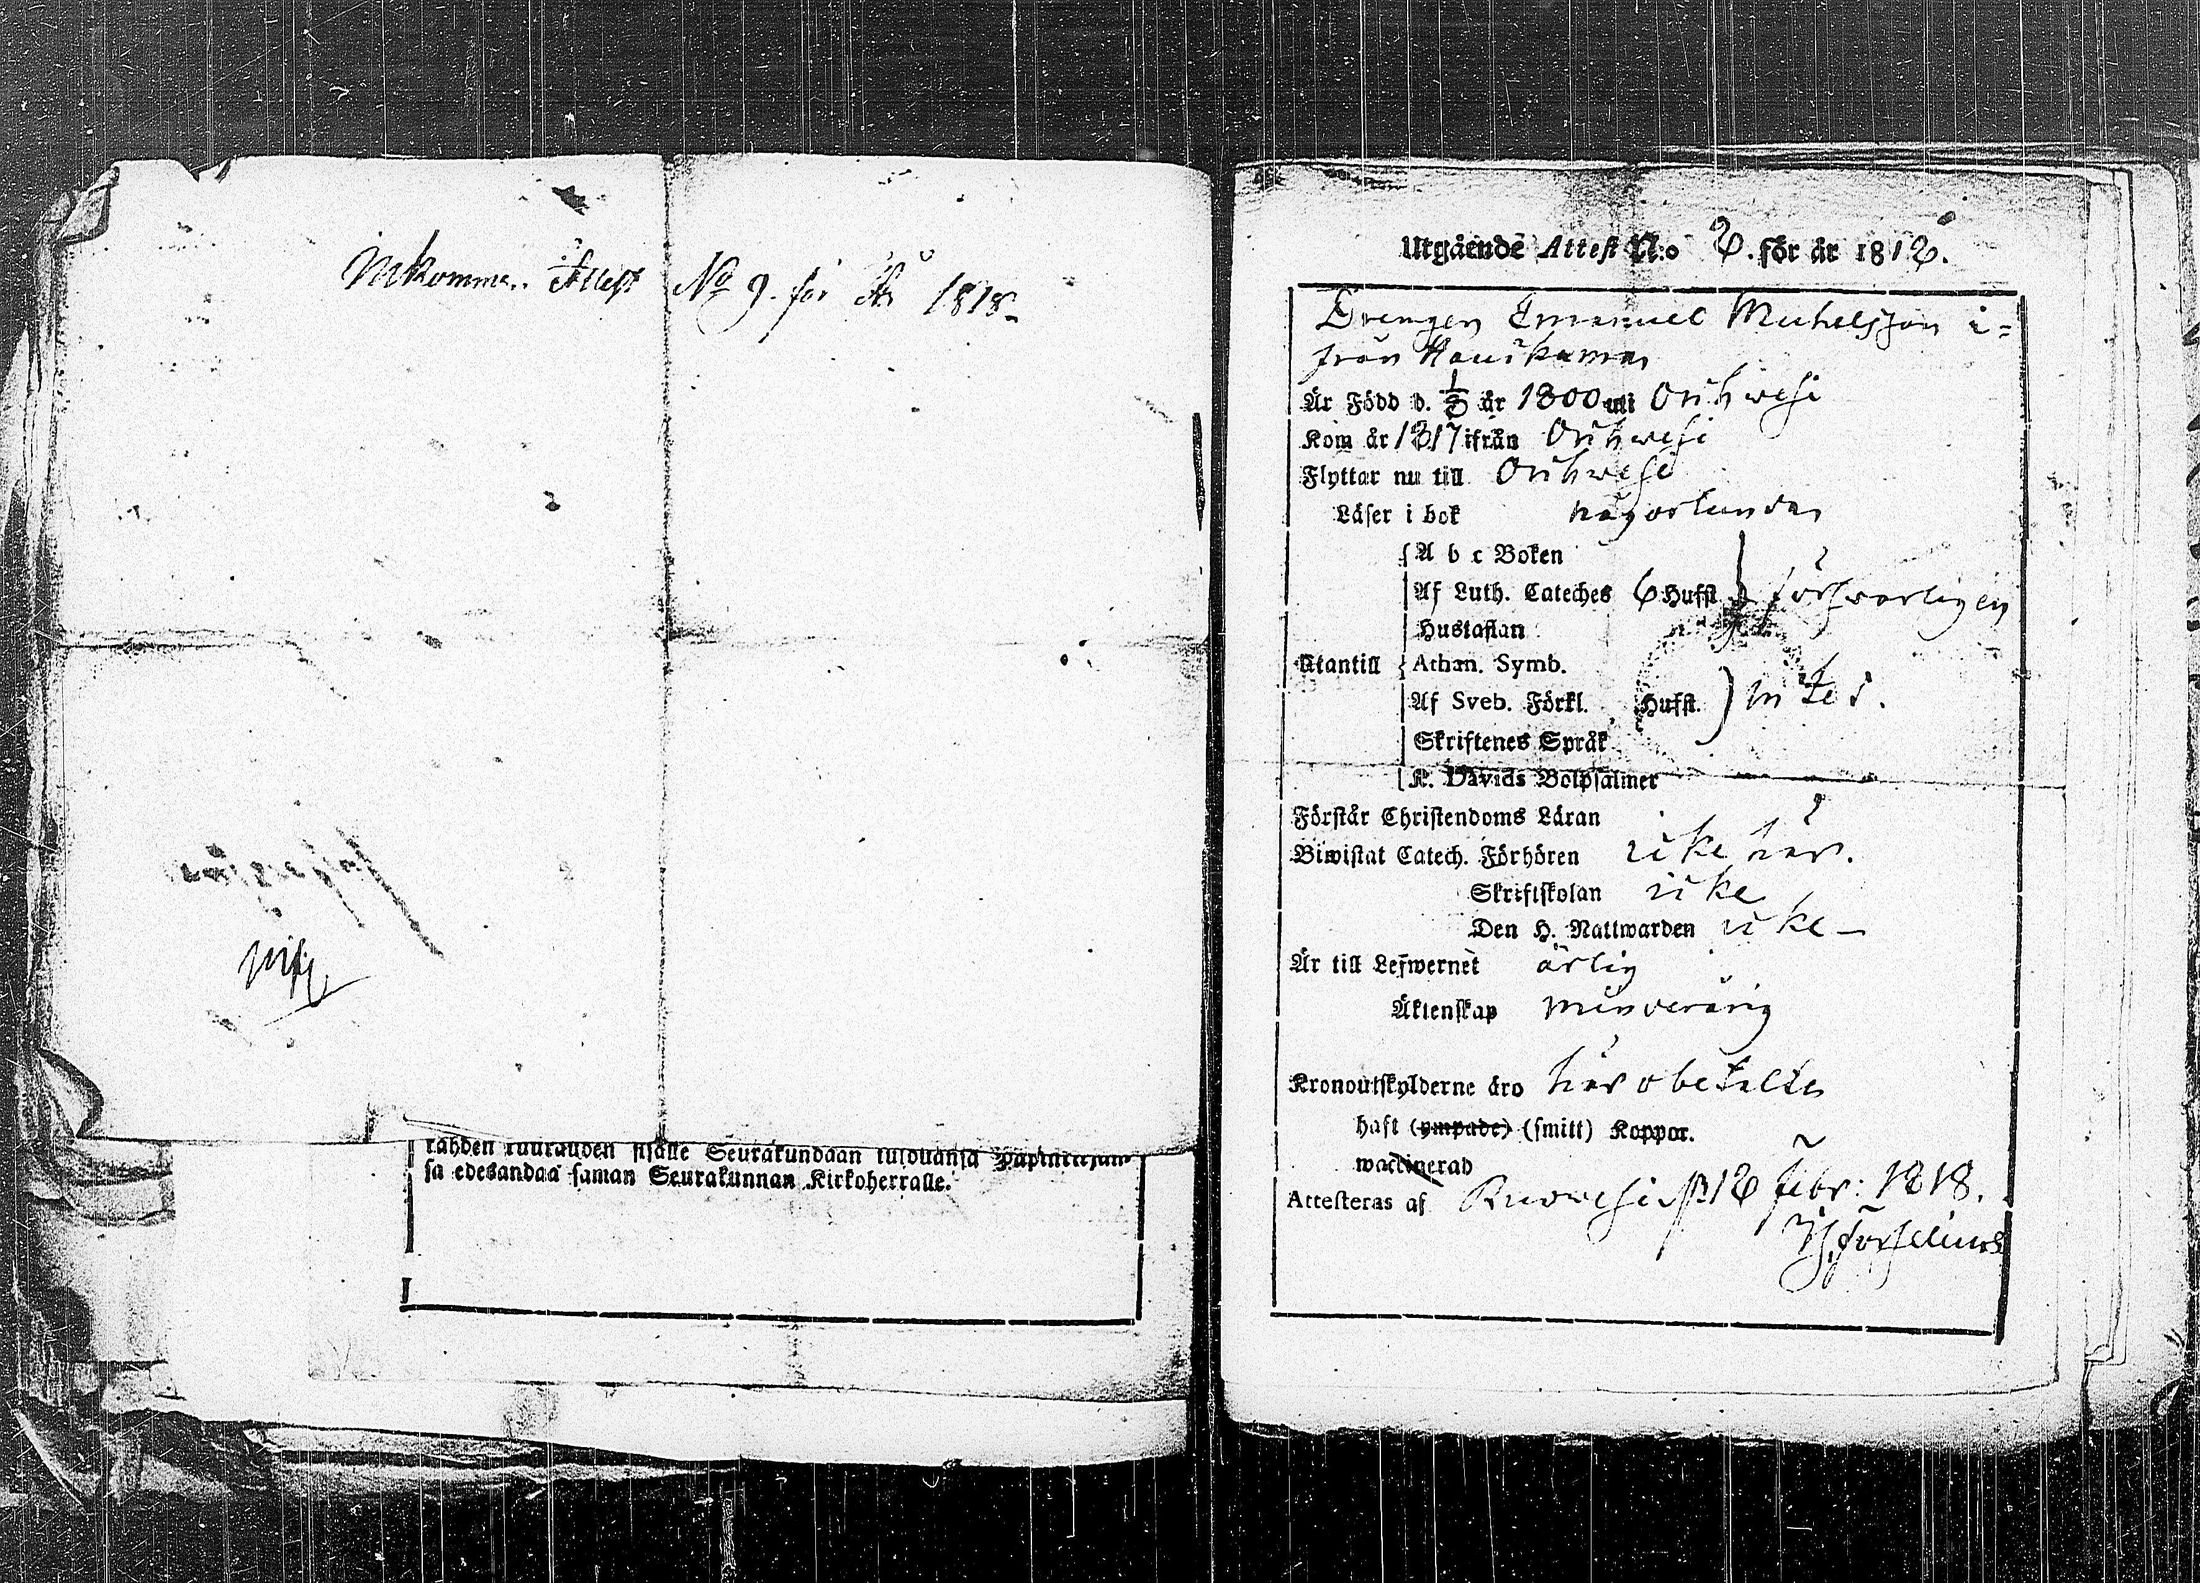 Inkommen Attest No 9. för År 1818.
rahden suurauden sisälle Seurakundaan
sa edesandaa saman Seurakunnan Kirkoherralle.
Utgående Attest N:o 8. för år 1818.
Drengen Emanuel Michelsson i=
från Hauikamen
Är Född d. 1/8 år 1800 uti Orihwesi
Kom år 1817 ifrån Orihwesi
Flyttar nu till Orihwesi
Läser i bok någorlunda
A b c Boken
Af Luth. Cateches 6 Hufst. } försvarligen
Hustaflan
Utantill Athan. Symb.
Af Sveb. Förkl. Hufst. ) intet.
Skriftenes Språk
K. Davids Botpsalmer
Förstår Christendoms Läran
Biwistat Catech. Förhören icke här.
Skriftskolan icke
Den H. Nattwarden icke
Är till Lefwernet ärlig
Äktenskap minderårig
Kronoutskylderne äro här obetalte
haft (ympade) (smitt) Koppor.
waccinerad
Attesteras af Ruovesi 18 Febr: 1818.